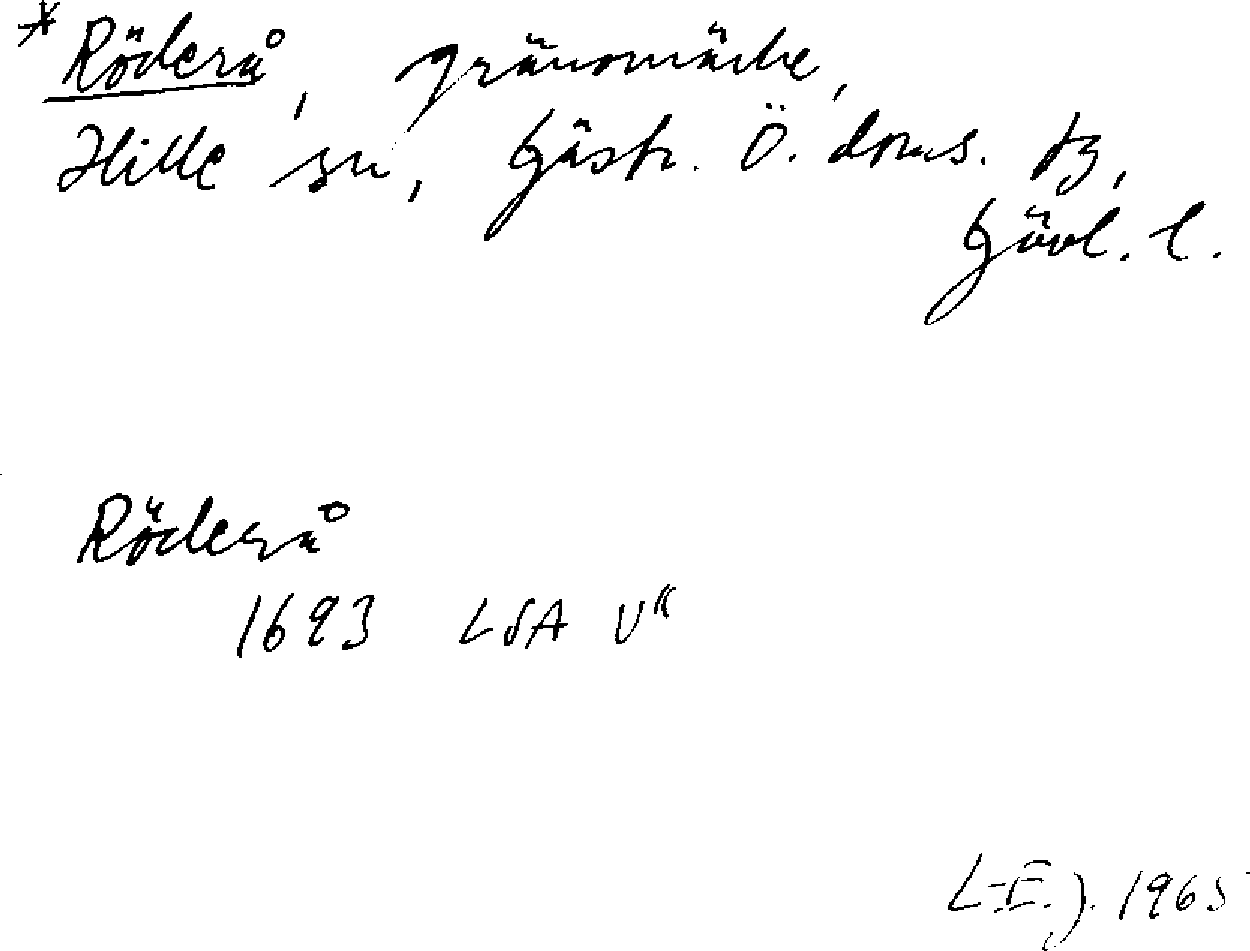 * Röderå, gränsmärke,
Hille sn, Gästr. Ö. doms. tg,
Gävl. l.
Röderå
1693 LSA V"
L-E. J. 1965